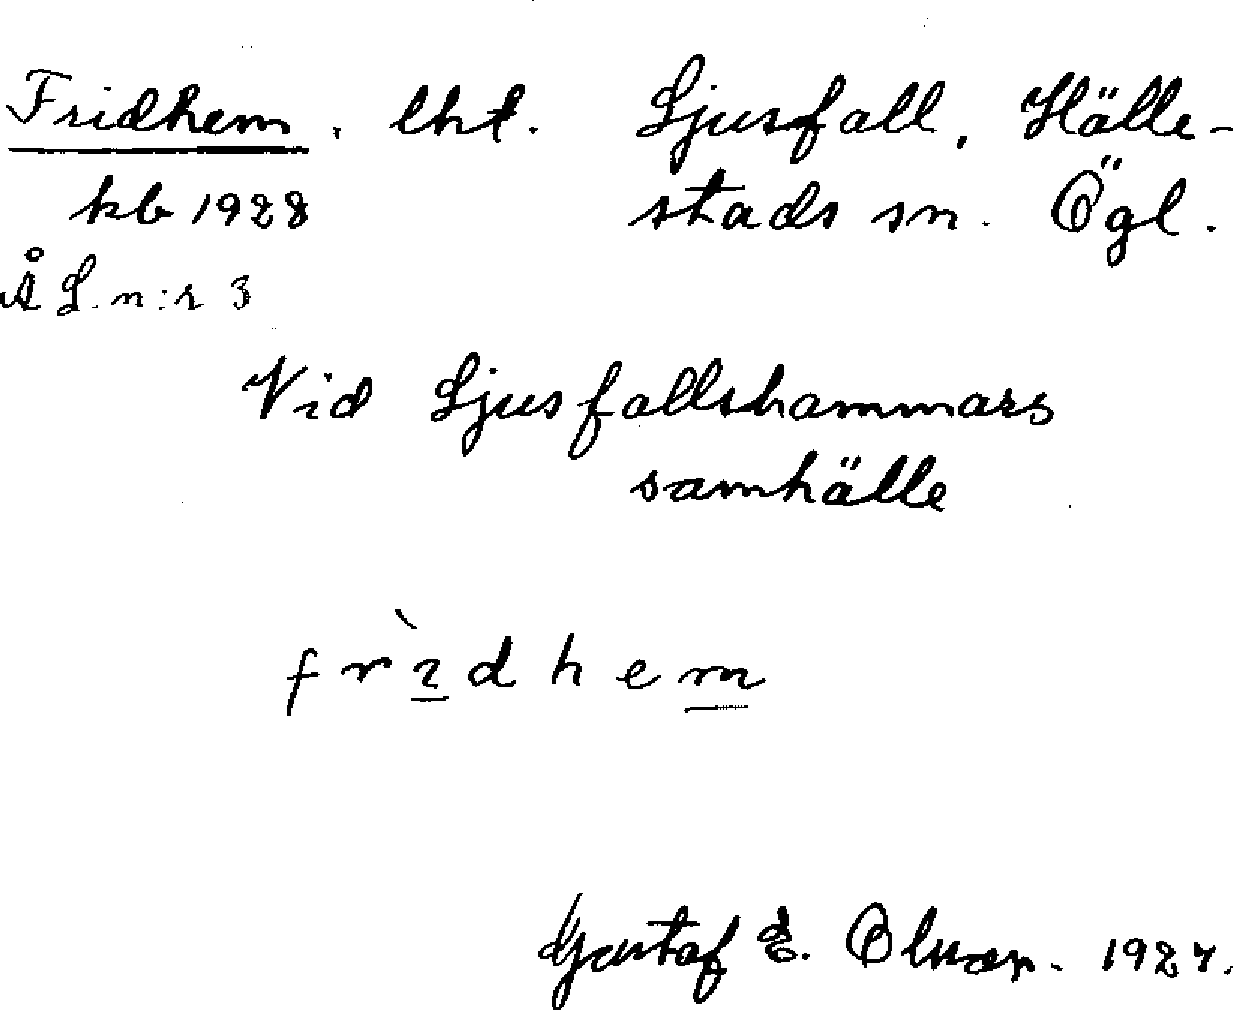 Fridhem, lht. Ljusfall, Hälle-
kb 1928 stads sn. Ögl.
ÅL. n:r 3
Vid Ljusfallshammars
samhälle
frìdhem
Gustaf E. Olsson. 1927.